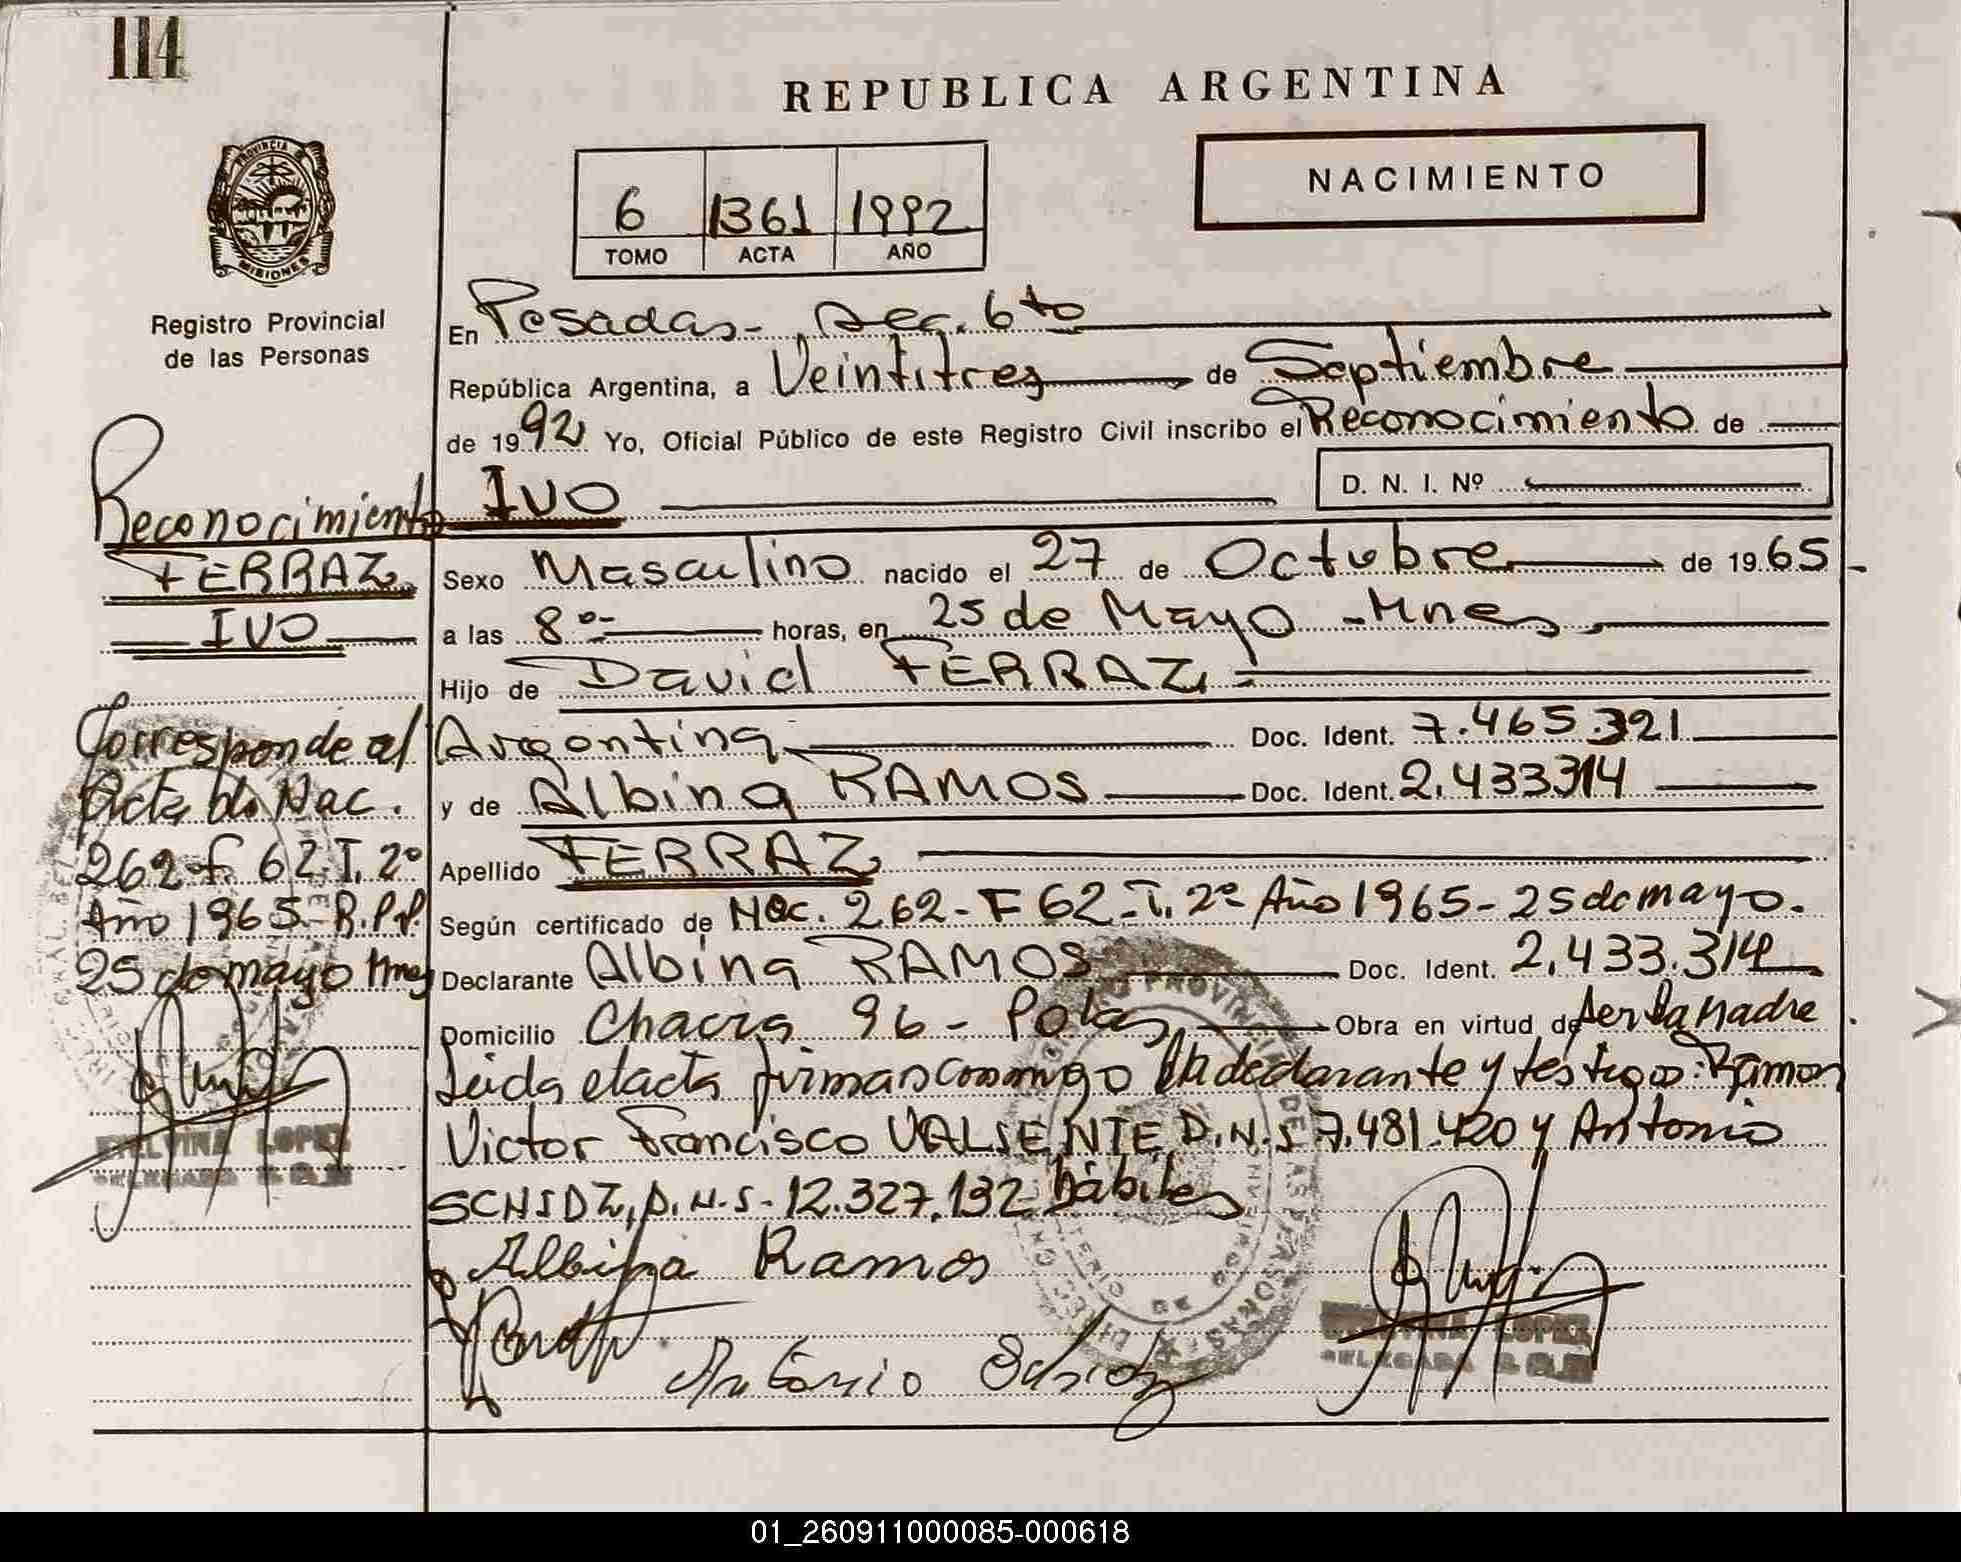 114
REPUBLICA ARGENTINA
NACIMIENTO
6 1361 1992
TOMO ACTA AÑO
PROVINCIA
MISIONES
Registro Provincial
de las Personas
En Posadas - Sec. 6to
República Argentina, a Veintitres de Septiembre
de 1992 Yo, Oficial Público de este Registro Civil inscribo el Reconocimiento de
IVO D. N. I. Nº
Sexo Masculino nacido el 27 de Octubre de 1965
a las 8 horas, en 25 de Mayo - Mnes
Hijo de David FERRAZ
Argentina Doc. Ident. 7.465.321
y de Albina RAMOS Doc. Ident. 2.433314
Apellido FERRAZ
Según certificado de Nac. 262 - F 62 - T. 2º Año 1965 - 25 de mayo.
Declarante Albina RAMOS Doc. Ident. 2.433.314
Domicilio Chacra 96 - Obra en virtud de ser la Madre
Leida el acta firman conmigo la declarante y testigos: Ramon
Victor Francisco VALIENTE D.N.I 7.481.420 y Antonio
D.N.I. 12.327.132 hábiles
Albina Ramos
Antonio
LOPEZ
DELEGADA
Reconocimiento
FERRAZ
IVO
Corresponde al
Acta de Nac.
262 f. 62 T. 2º
Año 1965 - R.P.P.
25 de mayo Mnes
LOPEZ
DELEGADA
01_260911000085-000618